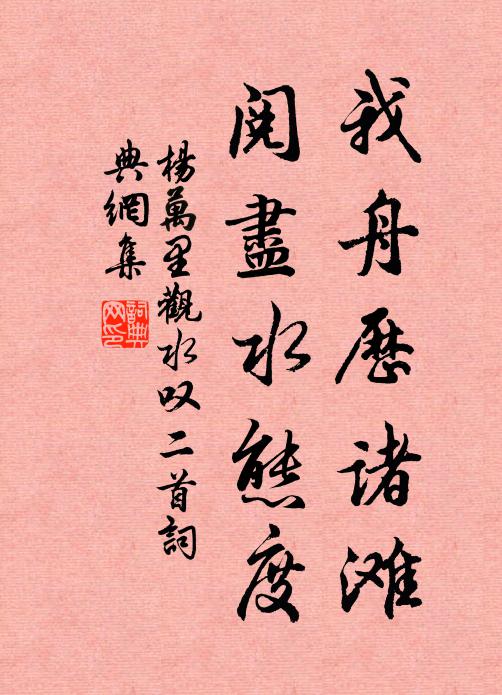 我舟歷諸滩
閱盡水態度
楊萬里觀水叹二首詞
典網集
詞典
网印